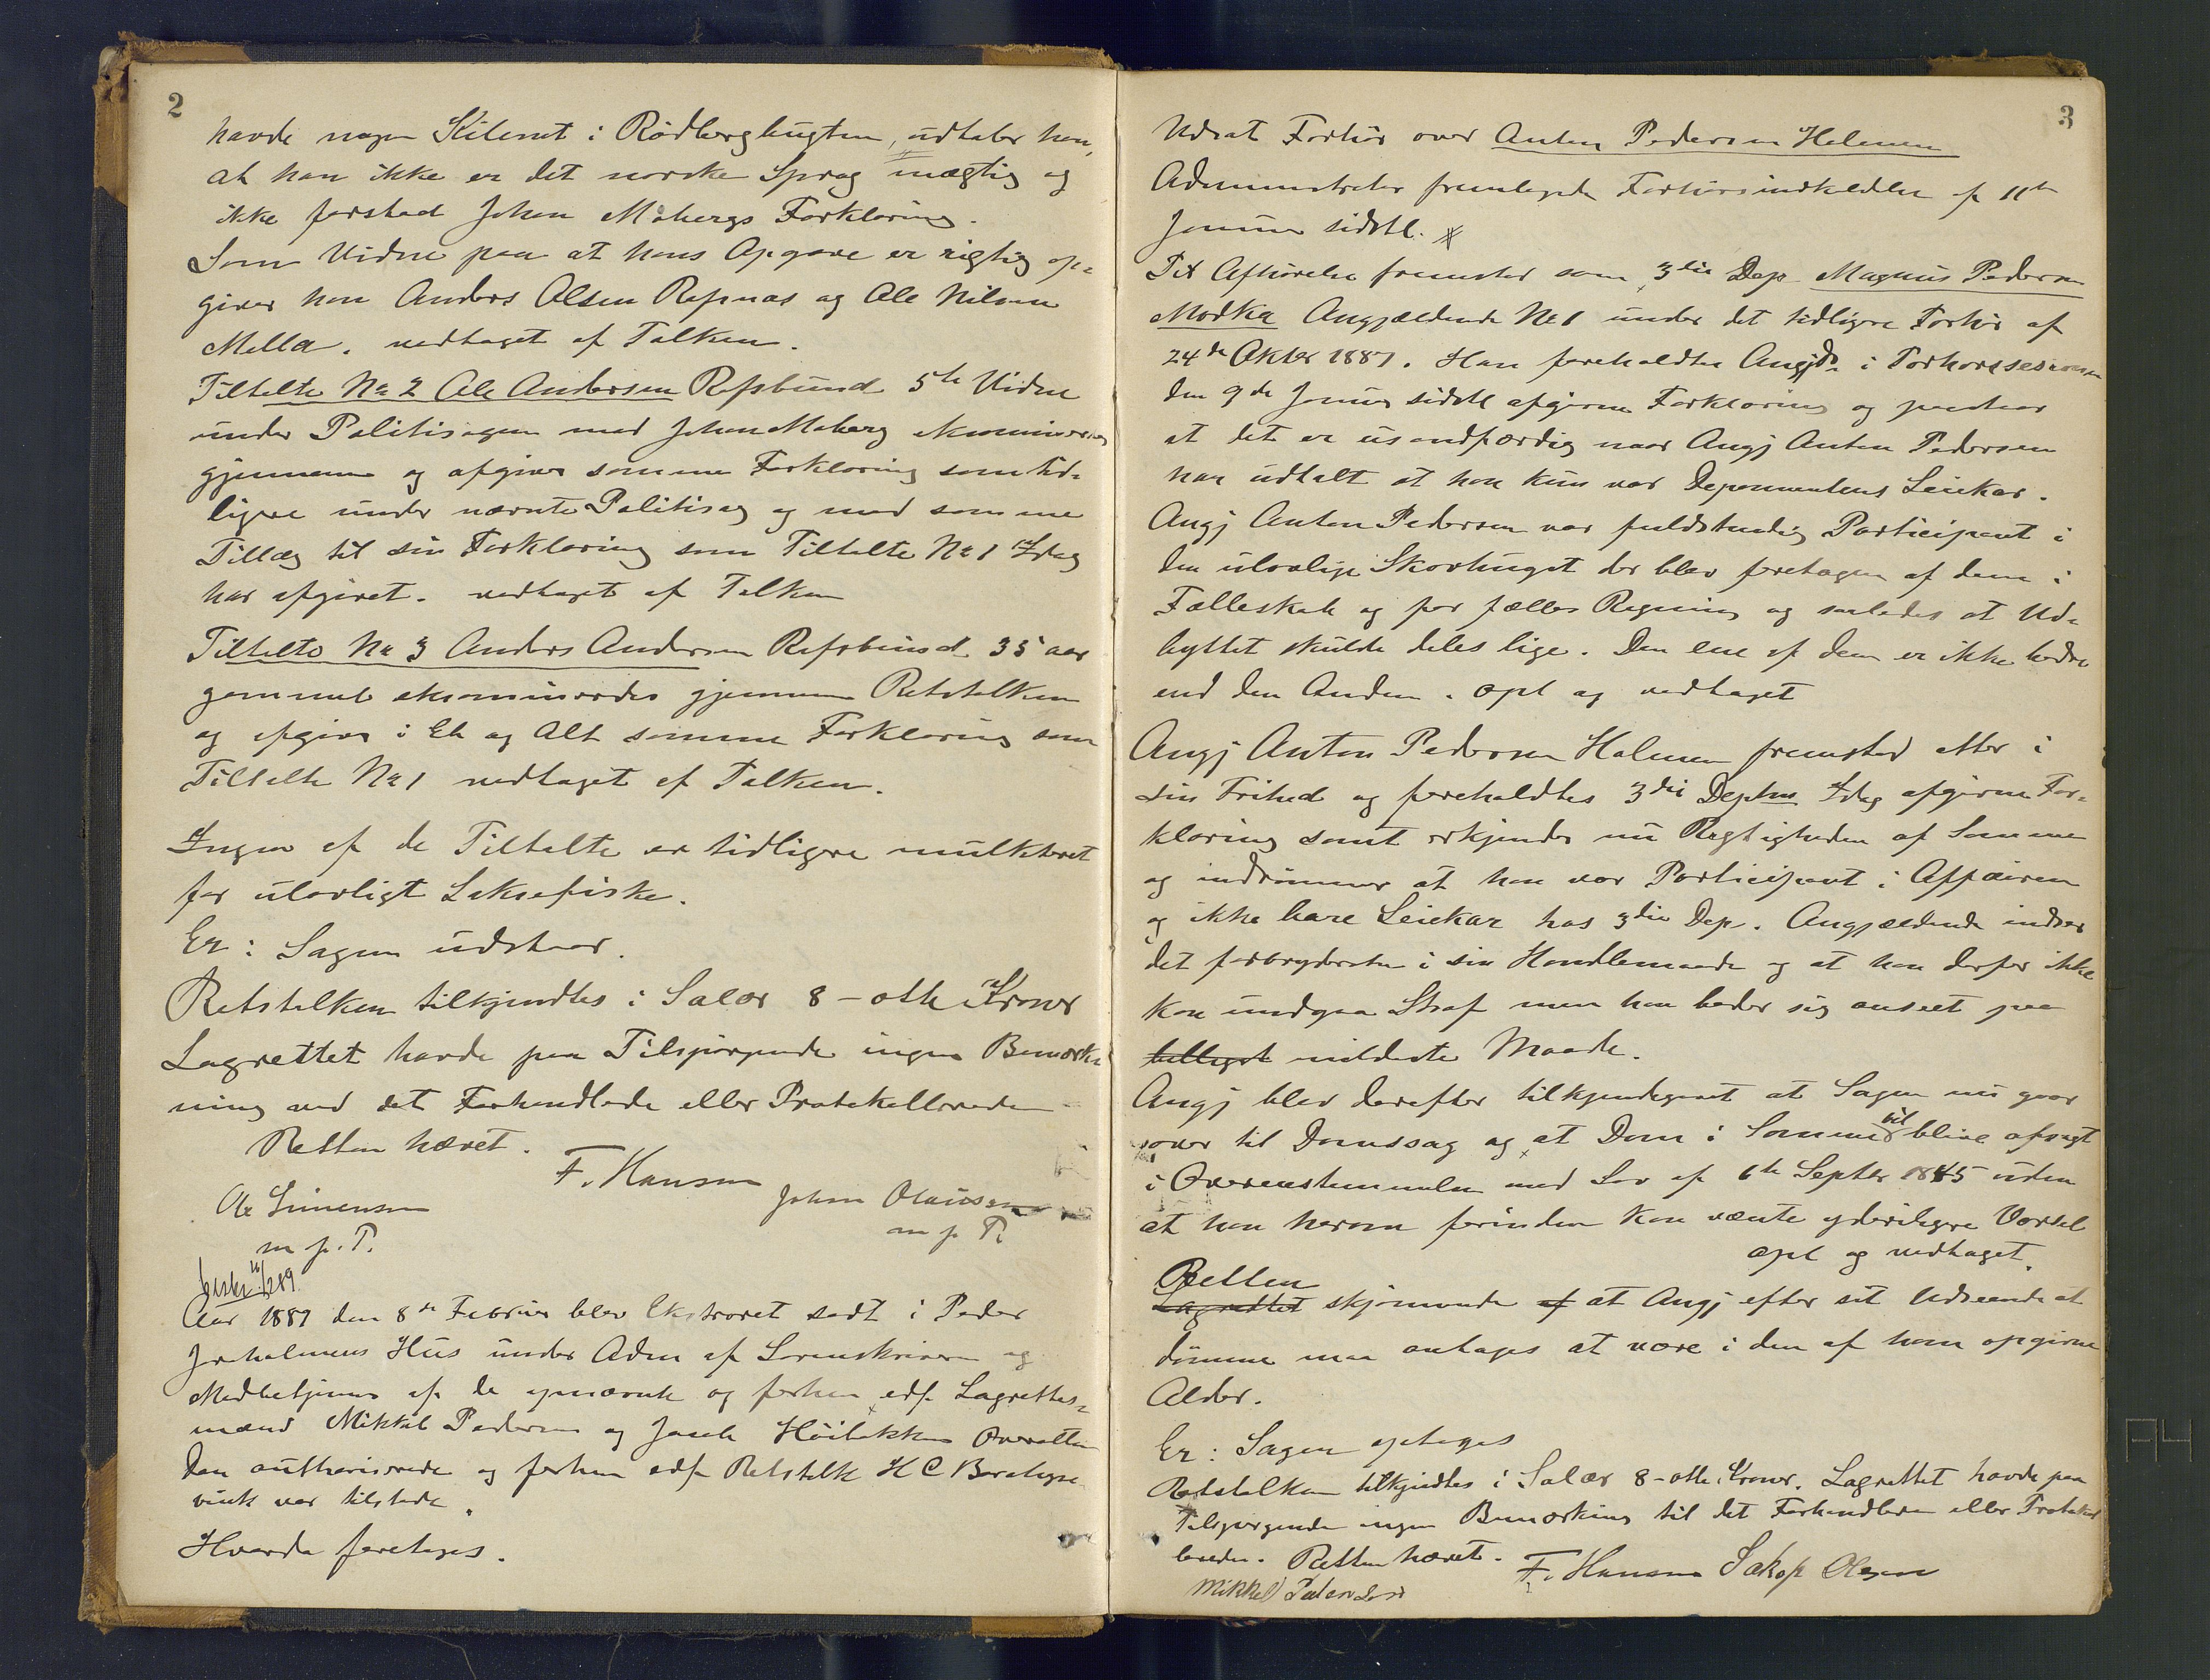 2
havde nogen Kilenot i Rødbergbugten, udtaler han,
at han ikke er det norske Sprog mægtig og
ikke forstod Johan Mobergs Forklaring.
Som Vidne paa at hans Opgave er rigtig op-
giver han Anders Olsen Refsnæs og Ole Nilsen
Mella. vedtaget af Tolken.
Tiltalte No 2 Ole Andersen Refsbund 5te Vidne
under Politisagen mod Johan Moberg
gjennem og afgiver samme Forklaring som tid-
ligere under nævnte Politisag og med samme
Tillæg til sin Forklaring som Tiltalte No 1 Idag
har afgivet. vedtaget af Tolken
Tiltalte No 3 Anders Andersen Refsbund 35 aar
gammel eksamineredes gjennem Retstolken
og afgiver i Et og Alt samme Forklaring som
Tiltalte No 1 vedtaget af Tolken.
Ingen af de Tiltalte er tidligere mulkteret
for ulovligt Laksefiske.
Er: Sagen udstaar.
Retstolken tilkjendtes i Salær 8 - otte Kroner
Lagrettet havde paa Tilspørgende ingen Bemærk-
ning ved det Forhandlede eller Protokollerede
Retten hævet.
F. Hansen
Ole Simensen
Johan Olaussen
m p. P.
m p. P.
beskr
Aar 1889 den 8de Februar blev Ekstraret sadt i Peder
Jæholmens Hus under Adm af Sorenskriveren og
Medbetjening af de opnævnte og forhen edf. Lagrettes-
mænd Mikkel Pedersen og Jacob
Den authoriserede og forhen edf. Retstolk H C
var tilstede.
Hvorda foretoges.
3
Udsat Forhør over Anton Pedersen Holmen
Administrator fremlagde Forhørsindkaldelse af 11te
Januar sidstl.
Til Afhørelse fremstod som 3die Dep Magnus Pedersen
Modka Angjældende No 1 under det tidligere Forhør af
24de Oktbr 1887. Han foreholdtes Angjds i Forhørssessionen
den 9de Januar sidstl afgivne Forklaring og paastaar
at det er usandfærdig naar Angj Anton Pedersen
har udtalt at han kun var Deponentens Leiekar.
Angj Anton Pedersen var fuldstændig Participant i
den ulovlige Skovhugst der blev foretagen af dem i
Fælleskab og for fælles Regning og saaledes at Ud-
byttet skulde deles lige. Den ene af dem er ikke bedre
end den Anden. opl og vedtaget
Angj Anton Pedersen Holmen fremstod atter i
sin Frihed og foreholdtes 3die Deptns Idag afgivne For-
klaring samt erkjender nu Rigtigheden af Samme
og indrømmer at han var Participant i Affæiren
og ikke bare Leiekar hos 3die Dep. Angjældende indser
det forbryderske i sin Handlemaade og at han derfor ikke
kan undgaa Straf men han beder sig anseet paa
billigst mildeste Maade.
Angj blev derefter tilkjendegivet at Sagen nu gaar
over til Domssag og at Dom i Samme vil blive afsagt
i Overensstemmelse med Lov af 6te Septbr 1845 uden
at han herom forinden kan vænte yderligere Varsel
opl og vedtaget.
Retten
Lagrettet skjønnede af at Angj efter sit Udseende at
dømme maa antages at være i den af ham opgivne
Alder.
Er: Sagen optages
Retstolken tilkjendtes i Salær 8 - otte Kroner. Lagrettet havde paa
Tilspørgende ingen Bemærkning til det Forhandlede eller Protokol
lerede. Retten hævet. F. Hansen Jakop Olsen
Mikkel Pedersen